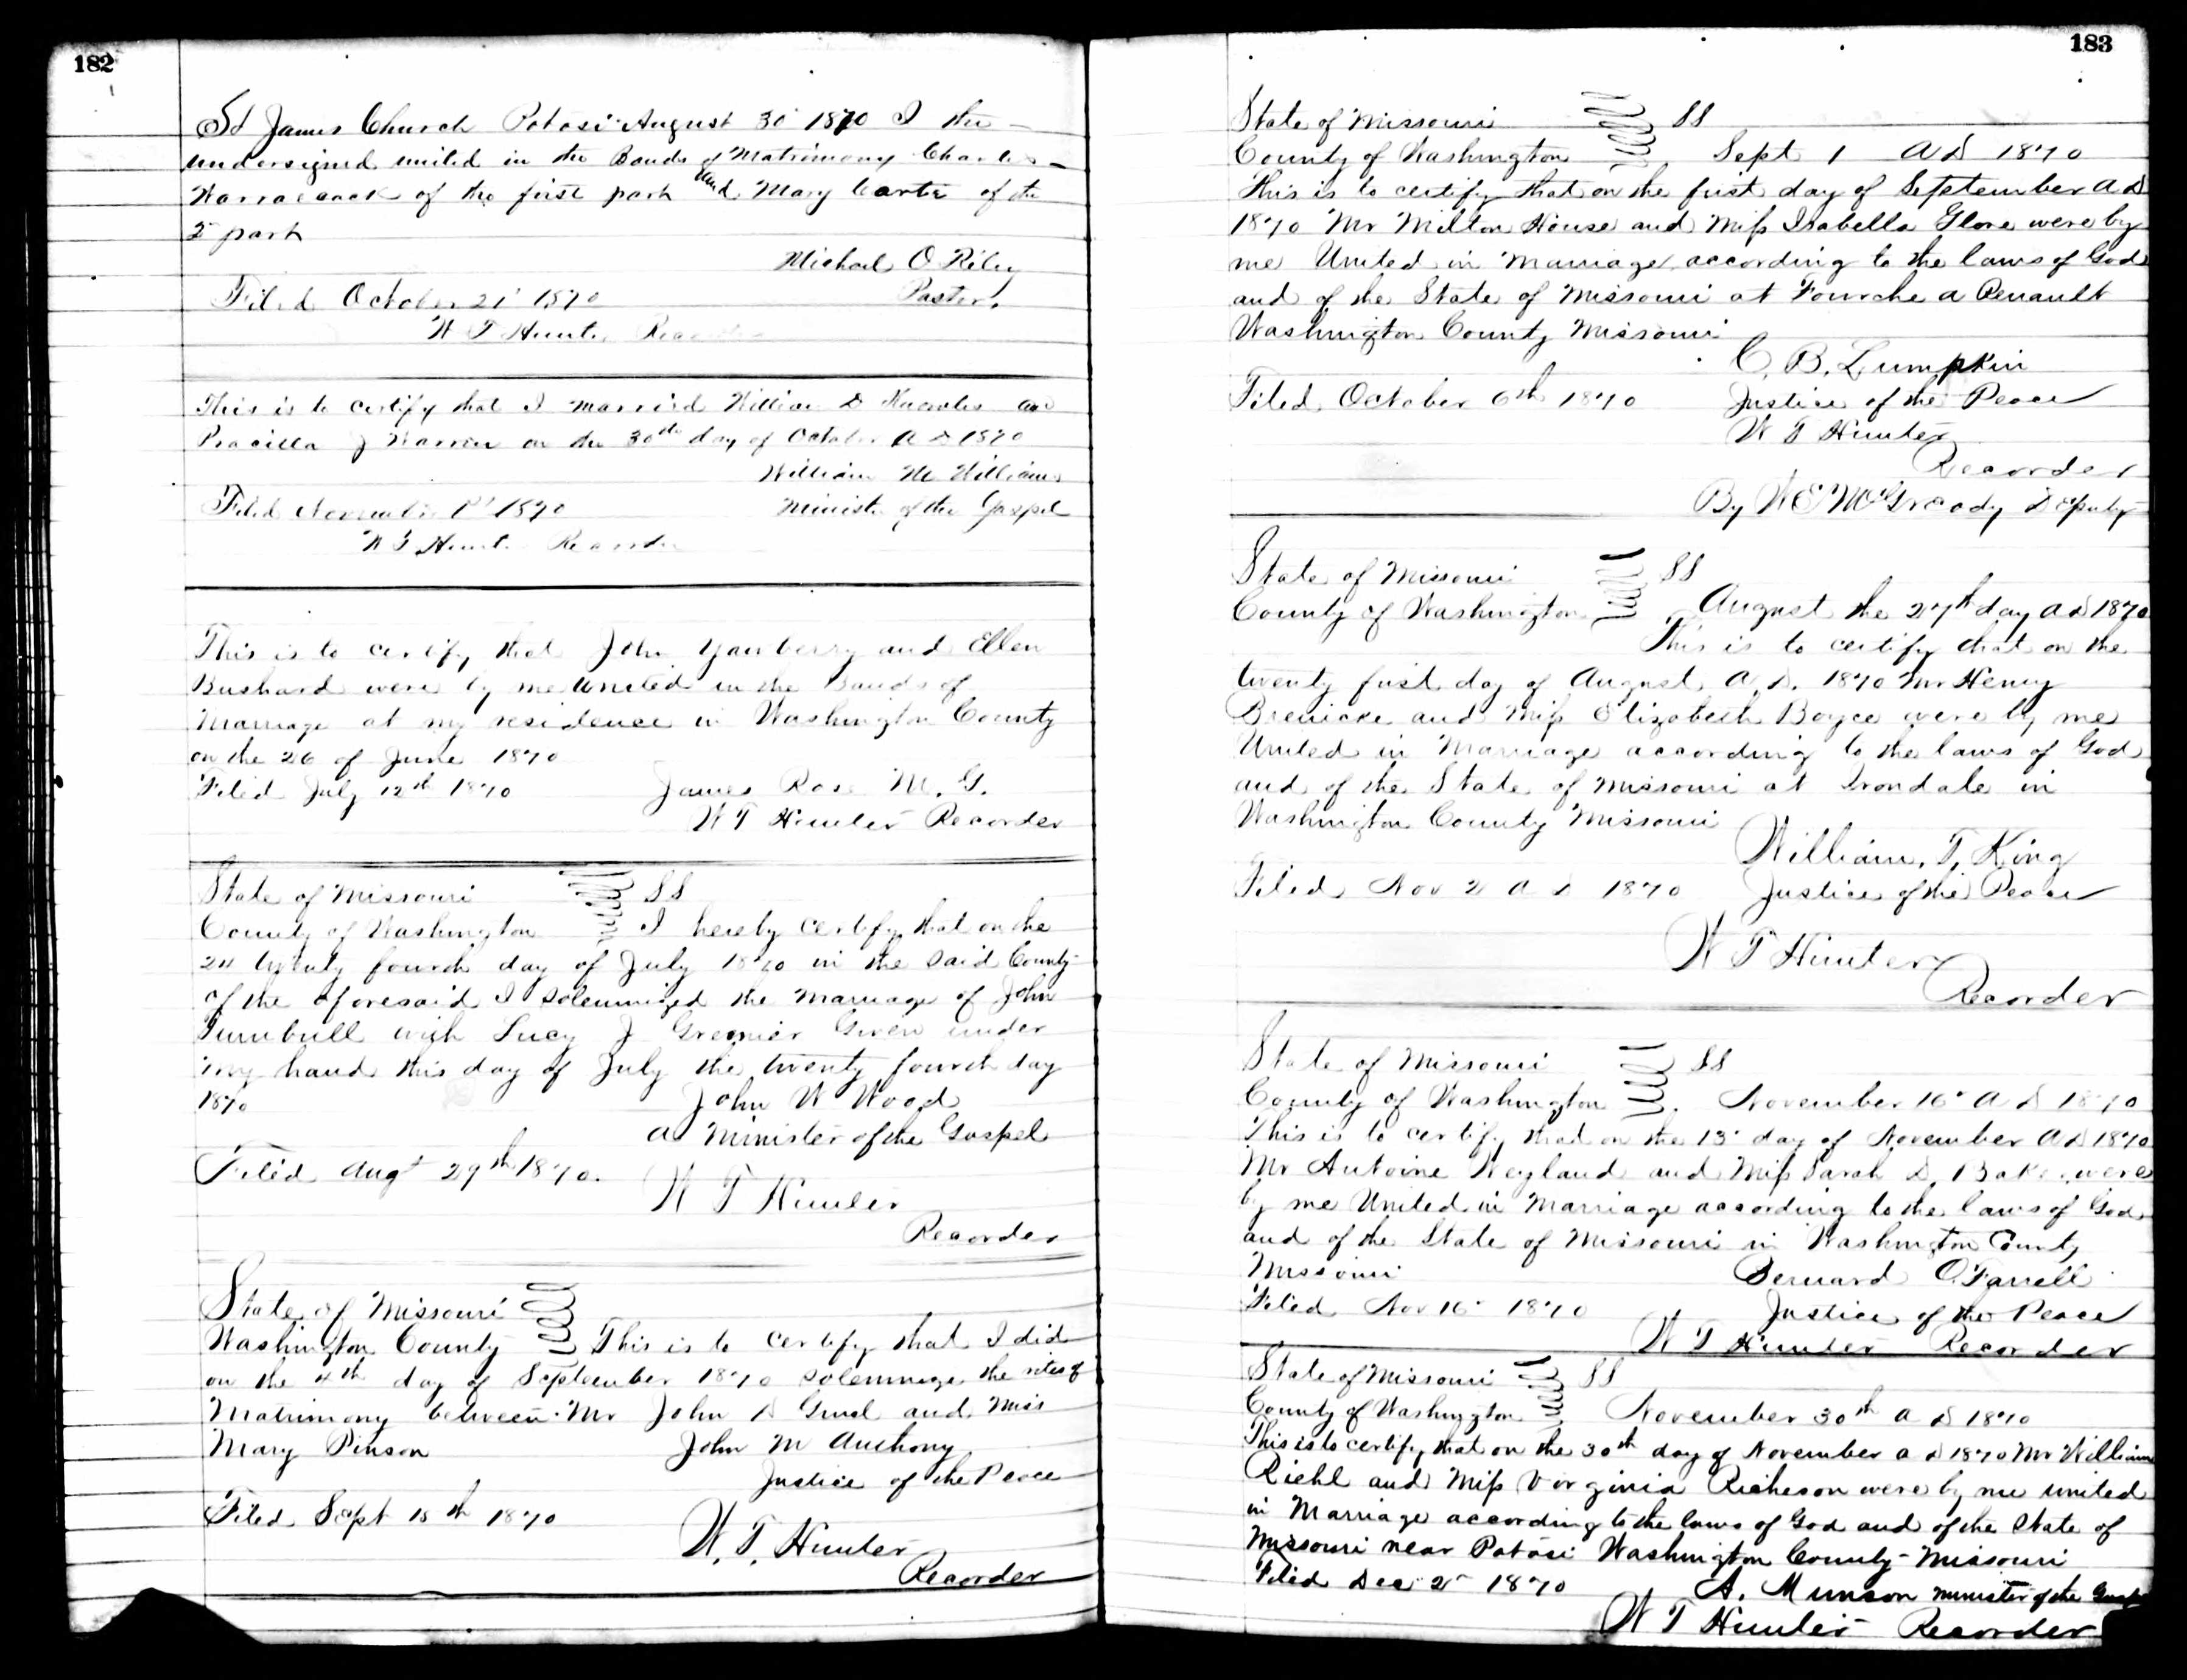 182
St James Church Potosi August 30 1870 I the
undersigned united in the Bonds of Matrimony Charles
of the first part and Mary Carte of the
2 part
Michael O Riley
Filed October 21 1870 Pastor.
W T Hunter Recorder
This is to certify that I married William D Knowles and
Pracilla J Warren on the 30th day of October A D 1870
William M Williams
Filed November 1st 1870 Minister of the Gospel
W T Hunter Recorder
This is to certify that John Yanberry and Ellen
Bushard were by me united in the Bands of
Marriage at my residence in Washington County
on the 26 of June 1870
Filed July 12th 1870 James Rose M. G.
W T Hunter Recorder
State of Missouri SS
County of Washington I hereby certify that on the
24 twenty fourth day of July 1870 in the said County
of the aforesaid I solemnized the marriage of John
Turnbull with Lucy J Gregnier Given under
my hand this day of July the twenty fourth day
1870 John W Wood
a Minister of the Gospel
Filed Augt 29th 1870.
W T Hunter
Recorder
State of Missouri
Washington County This is to certify that I did
on the 4th day of September 1870 solemnize the rites of
Matrimony between Mr John D and Miss
Mary Pinson John M Anthony
Justice of the Peace
Filed Sept 15th 1870
W. T. Hunter
Recorder
183
State of Missouri SS
County of Washington Sept 1 A D 1870
This is to certify that on the first day of September A D
1870 Mr Milton House and Miss Isabella Glore were by
me United in Marriage according to the laws of God
and of the State of Missouri at Fourche a Renault
Washington County Missouri
C. B. Lumpkin
Filed October 6th 1870 Justice of the Peace
W T Hunter
Recorder
By W E McGready Deputy
State of Missouri SS
County of Washington August the 27th day A D 1870
This is to certify that on the
twenty first day of August A. D. 1870 Mr Henry
Brenicke and Miss Elizabeth Boyce were by me
United in Marriage according to the laws of God
and of the State of Missouri at Irondale in
Washington County Missouri
William. T. King
Filed Nov 2 A D 1870 Justice of the Peace
W T Hunter
Recorder
State of Missouri SS
County of Washington November 16 A D 1870
This is to certify that on the 13 day of November A D 1870
Mr Antoine Weyland and Miss Sarah D. Baker were
by me United in Marriage according to the laws of God
and of the State of Missouri in Washington County
Missouri Bernard O'Farrell
Filed Nov 16 1870 Justice of the Peace
W T Hunter Recorder
State of Missouri SS
County of Washington November 30th A D 1870
This is to certify that on the 30th day of November A D 1870 Mr William
Riehl and Miss Virginia Richeson were by me united
in Marriage according to the laws of God and of the State of
Missouri near Potosi Washington County Missouri
Filed Dec 2 1870 A. Munson minister of the Gospel
W T Hunter Recorder